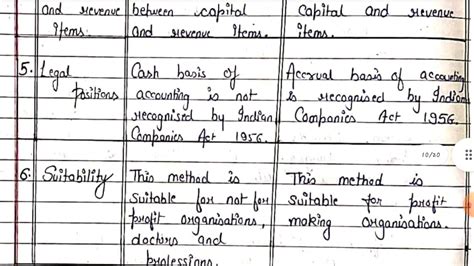 and revenue between capital capital and revenue
items. and revenue items. items.
5. Legal Cash basis of Accrual basis of accounting
positions accounting is not is recognised by Indian
recognised by Indian Companies Act 1956.
Companies Act 1956.
10/20
6. Suitability This method is This method is
suitable for not for suitable for profit
profit organisations, making organisations.
doctors and
professions.